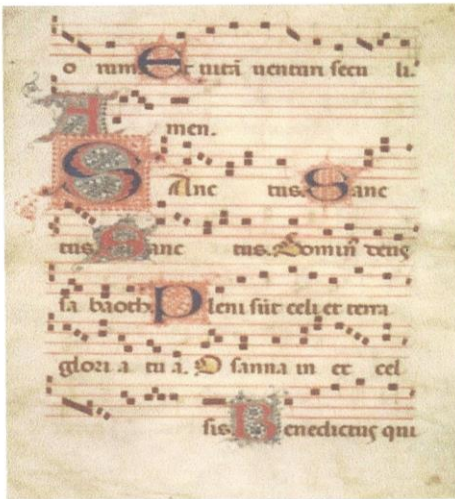 o rum. Et uitā uenturi secu li.
Amen.
Sanc tus. Sanc
tus. Sanc tus. Domin̄ deus
sa baoth. Pleni sūt celi et terra
glori a tu a. O sanna in ex cel
sis. Benedictus qui